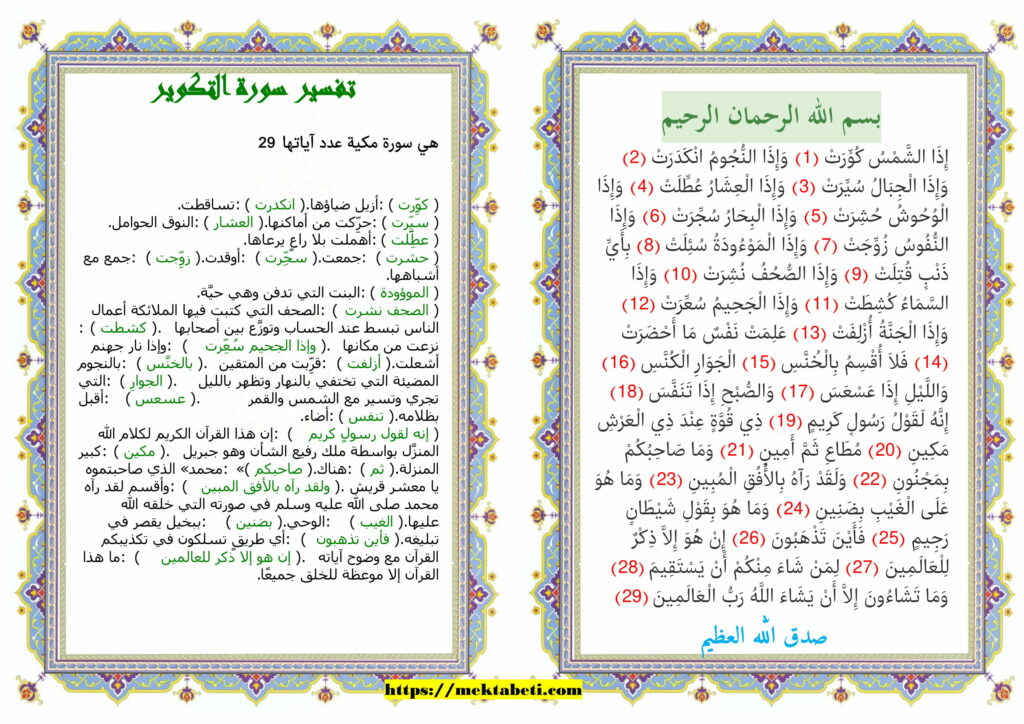 بسم الله الرحمان الرحيم
إِذَا الشَّمْسُ كُوِّرَتْ (1) وَإِذَا النُّجُومُ انْكَدَرَتْ (2)
وَإِذَا الْجِبَالُ سُيِّرَتْ (3) وَإِذَا الْعِشَارُ عُطِّلَتْ (4) وَإِذَا
الْوُحُوشُ حُشِرَتْ (5) وَإِذَا الْبِحَارُ سُجِّرَتْ (6) وَإِذَا
النُّفُوسُ زُوِّجَتْ (7) وَإِذَا الْمَوْءُودَةُ سُئِلَتْ (8) بِأَيِّ
ذَنْبٍ قُتِلَتْ (9) وَإِذَا الصُّحُفُ نُشِرَتْ (10) وَإِذَا
السَّمَاءُ كُشِطَتْ (11) وَإِذَا الْجَحِيمُ سُعِّرَتْ (12)
وَإِذَا الْجَنَّةُ أُزْلِفَتْ (13) عَلِمَتْ نَفْسٌ مَا أَحْضَرَتْ
(14) فَلاَ أُقْسِمُ بِالْخُنَّسِ (15) الْجَوَارِ الْكُنَّسِ (16)
وَاللَّيْلِ إِذَا عَسْعَسَ (17) وَالصُّبْحِ إِذَا تَنَفَّسَ (18)
إِنَّهُ لَقَوْلُ رَسُولٍ كَرِيمٍ (19) ذِي قُوَّةٍ عِنْدَ ذِي الْعَرْشِ
مَكِينٍ (20) مُطَاعٍ ثَمَّ أَمِينٍ (21) وَمَا صَاحِبُكُمْ
بِمَجْنُونٍ (22) وَلَقَدْ رَآهُ بِالأُفُقِ الْمُبِينِ (23) وَمَا هُوَ
عَلَى الْغَيْبِ بِضَنِينٍ (24) وَمَا هُوَ بِقَوْلِ شَيْطَانٍ
رَجِيمٍ (25) فَأَيْنَ تَذْهَبُونَ (26) إِنْ هُوَ إِلاَّ ذِكْرٌ
لِلْعَالَمِينَ (27) لِمَنْ شَاءَ مِنْكُمْ أَنْ يَسْتَقِيمَ (28)
وَمَا تَشَاءُونَ إِلاَّ أَنْ يَشَاءَ اللَّهُ رَبُّ الْعَالَمِينَ (29)
صدق الله العظيم
تفسير سورة التكوير
هي سورة مكية عدد آياتها 29
( كوِّرت ) :أزيل ضياؤها.( انكدرت ) :تساقطت.
( سيرت ) :حرِّكت من أماكنها.( العشار ) :النوق الحوامل.
( عطِّلت ) :أهملت بلا راعٍ يرعاها.
( حشرت ) :جمعت.( سجِّرت ) :أوقدت.( زوِّجت ) :جمع مع
أشباهها.
( الموؤودة ) :البنت التي تدفن وهي حيَّة.
( الصحف نشرت ) :الصحف التي كتبت فيها الملائكة أعمال
الناس تبسط عند الحساب وتوزَّع بين أصحابها .( كشطت ) :
نزعت من مكانها .( وإذا الجحيم سُعِّرت ) :وإذا نار جهنم
أشعلت.( أزلفت ) :قرِّبت من المتقين .( بالخنَّس ) :بالنجوم
المضيئة التي تختفي بالنهار وتظهر بالليل .( الجوارِ ) :التي
تجري وتسير مع الشمس والقمر .( عسعس ) :أقبل
بظلامه.( تنفس ) :أضاء.
( إنه لقول رسولٍ كريم ) :إن هذا القرآن الكريم لكلام الله
المنزَّل بواسطة ملك رفيع الشأن وهو جبريل .( مكين ) :كبير
المنزلة.( ثم ) :هناك.( صاحبكم ) :«محمد» الذي صاحبتموه
يا معشر قريش .( ولقد رآه بالأفق المبين ) :وأقسم لقد رآه
محمد صلى الله عليه وسلم في صورته التي خلقه الله
عليها.( الغيب ) :الوحي.( بضنين ) :ببخيل يقصر في
تبليغه.( فأين تذهبون ) :أي طريقٍ تسلكون في تكذيبكم
القرآن مع وضوح آياته .( إن هو إلا ذكر للعالمين ) :ما هذا
القرآن إلا موعظة للخلق جميعًا.
https://mektabeti.com